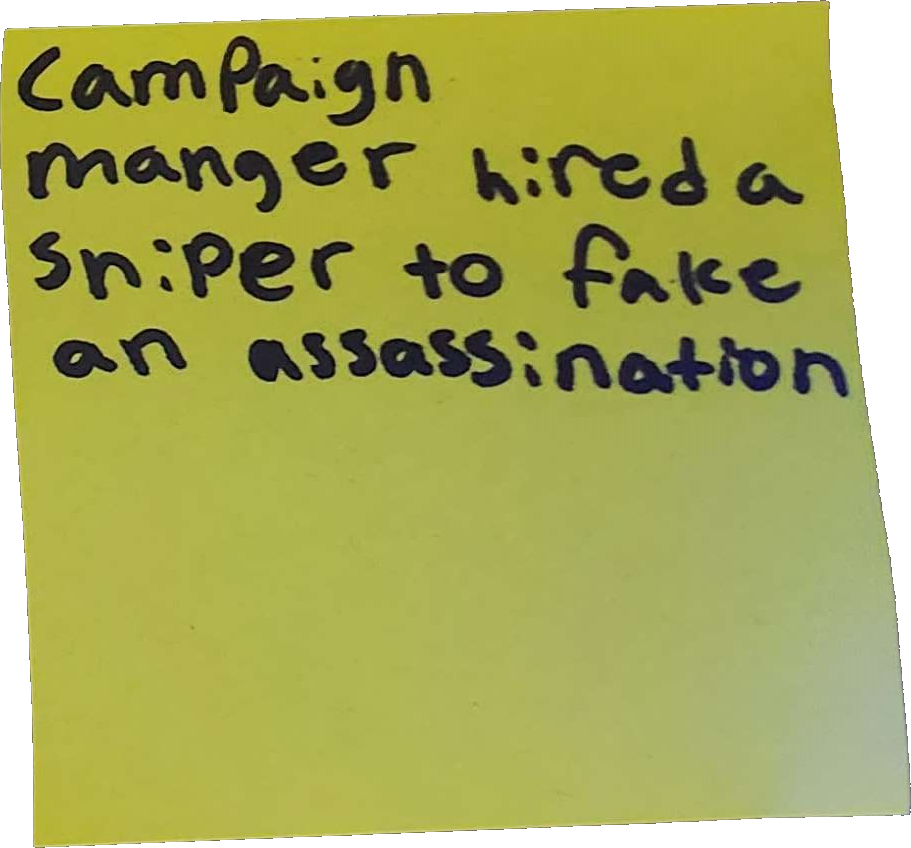 Campaign
manger hired a
sniper to fake
an assassination